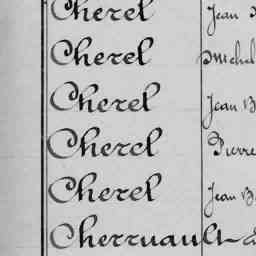 Cherel Jean
Cherel Michel
Cherel Jean B
Cherel Pierre
Cherel Jean B
Cherruault